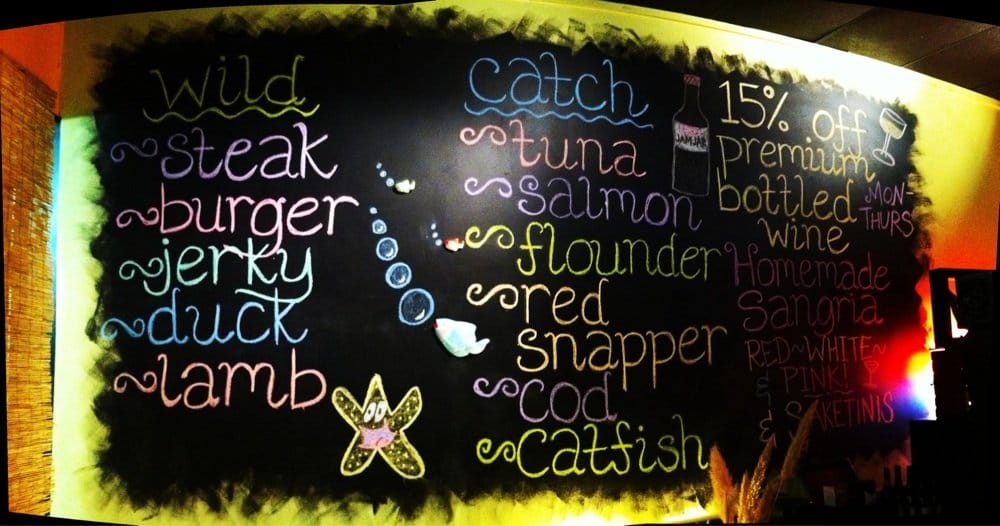 wild
~steak
~burger
~jerky
~duck
~lamb
catch
~tuna
~salmon
~flounder
~red
snapper
~cod
~catfish
JAMJAR
15% off
premium
bottled
wine
MON-
THURS
Homemade
Sangria
RED~WHITE~
PINK!
& SAKETINIS